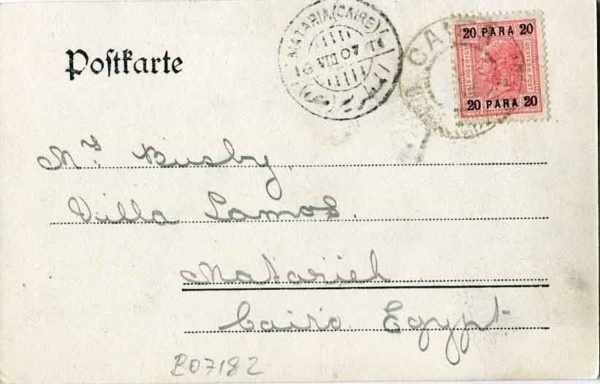 Postkarte
MATARIA (CAIRO)
VIII 07
20 PARA 20
20 PARA 20
Mr. Busby.
Villa Samos.
Matarieh
Cairo Egypt
B07182